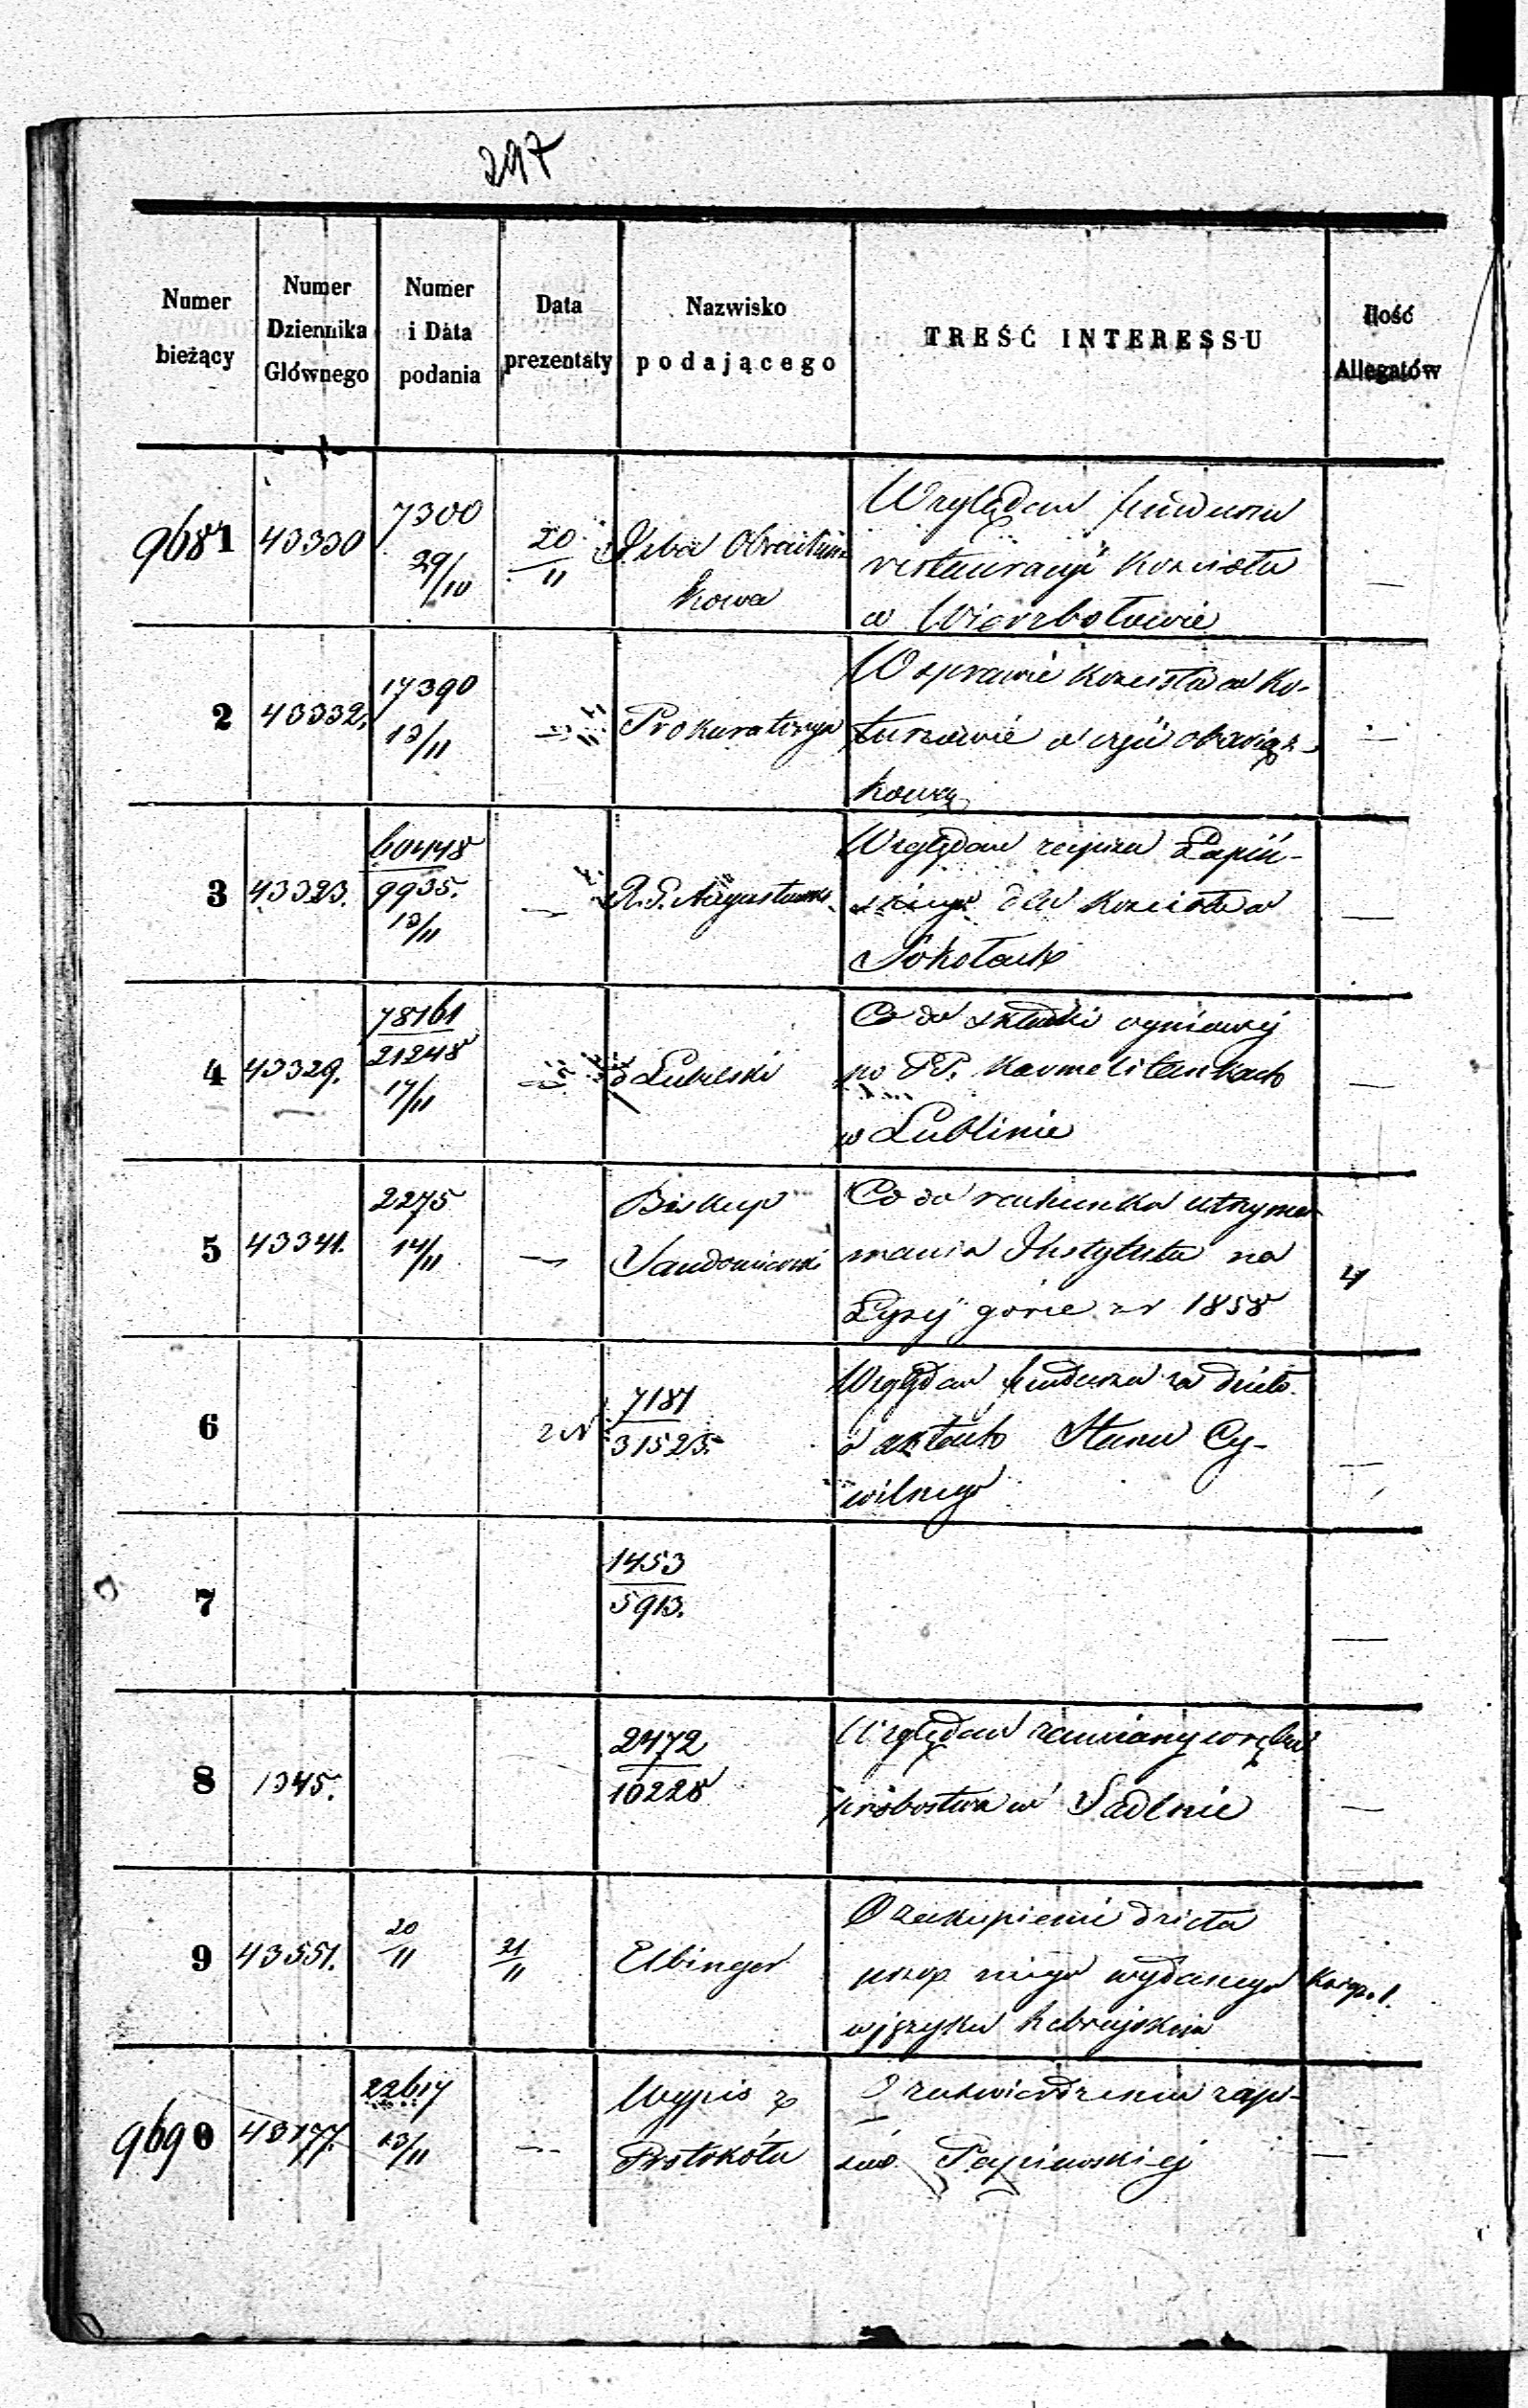 297
Numer bieżący
Numer Dziennika Głównego
Numer i Data podania
Data prezentaty
Nazwisko podającego
TREŚĆ INTERESSU
Ilość Allegatów
9681 43330 7300 29/10 20/11 Izba Obrachun
kowa
Względem funduszu
restauracyi Kościoła
w Wierzbołowie
—
2 43332. 17390 13/11 — Prokuratorya
W sprawie kościoła w Ko-
w
kową
—
3 43323. 60448/9935. 13/11 — R. G. Augustowski
Względem zapisu Łapiń-
skiego dla Kościoła w
Sokołach
—
4 43329. 78161/21248 17/11 — Lubelski
Co do składki ogniowej
po PP. Karmelitankach
w Lublinie
—
5 43341. 2275 14/11 — Biskup
Sandomierski
Co do rachunku utrzy
mania Instytutu na
Łysej górze za r 1858
4
6 z N 7181/31523.
Względem funduszu za dzieło
o aktach Stanu Cy-
wilnego
—
7 1453/5913.
—
8 1345. 2472/10228
Względem zamiany
probostwa w Sadlnie
—
9 43551. 20/11 21/11 Elbinger
O zakupienie dzieła
przez niego wydanego
w języku hebrajskim
Książ. 1.
9690 43177. 22617 13/11 — Wypis z
Protokółu
O zatwierdzeniu zapi-
sów
—